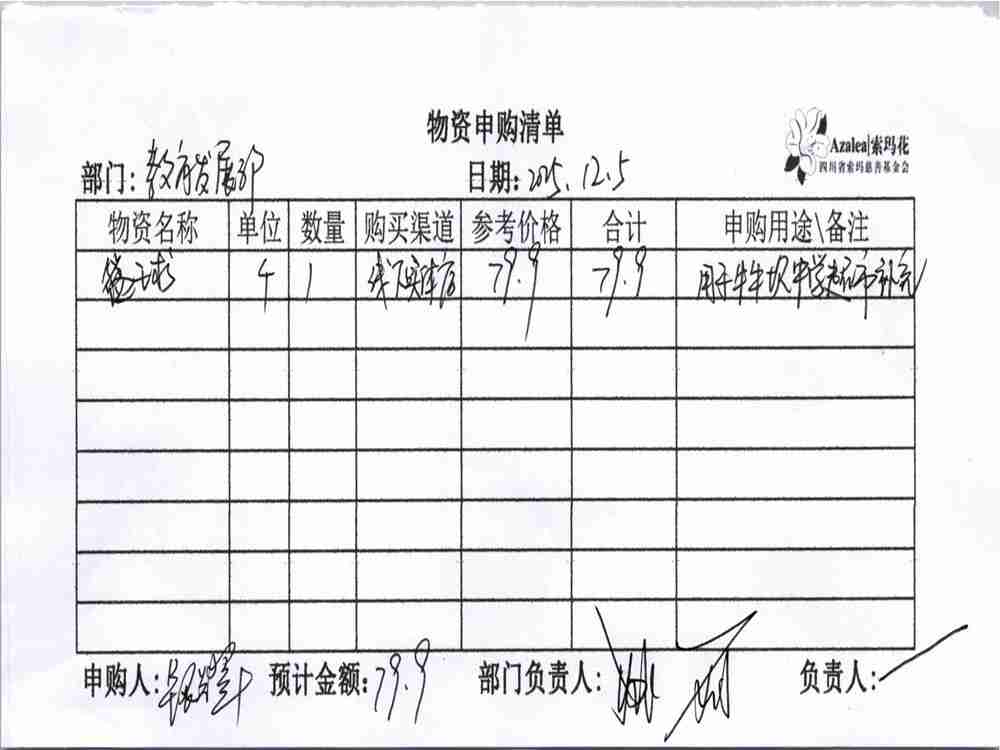 物资申购清单
Azalea|索玛花
四川省索玛慈善基金会
部门：教育发展部 日期：2025.12.5
物资名称 单位 数量 购买渠道 参考价格 合计 申购用途\备注
篮球 个 1 线下实体店 79.9 79.9 用于牛牛坝中学超市补充
申购人： 预计金额：79.9 部门负责人： 负责人：